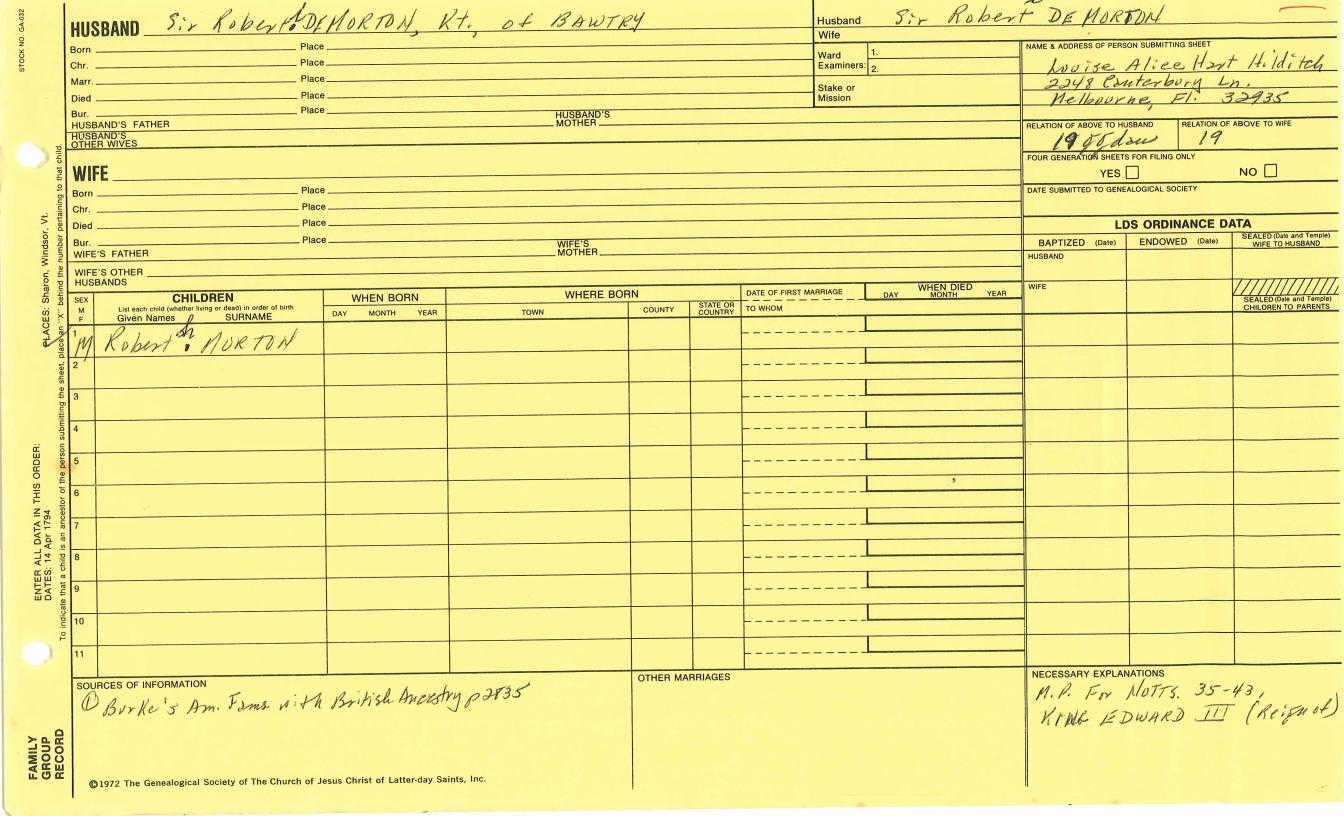 STOCK NO. GA-032
HUSBAND Sir Robert DE MORTON, Kt. of BAWTRY
Born Place
Chr. Place
Marr. Place
Died Place
Bur. Place
HUSBAND'S FATHER HUSBAND'S MOTHER
HUSBAND'S OTHER WIVES
Husband Sir Robert DE MORTON
Wife
Ward Examiners: 1.
2.
Stake or Mission
NAME & ADDRESS OF PERSON SUBMITTING SHEET
Louise Alice Hart Hilditch
2248 Canterbury Ln.
Melbourne, Fl. 32935
RELATION OF ABOVE TO HUSBAND RELATION OF ABOVE TO WIFE
19 19
FOUR GENERATION SHEETS FOR FILING ONLY
YES NO
DATE SUBMITTED TO GENEALOGICAL SOCIETY
WIFE
Born Place
Chr. Place
Died Place
Bur. Place
WIFE'S FATHER WIFE'S MOTHER
WIFE'S OTHER HUSBANDS
LDS ORDINANCE DATA
BAPTIZED (Date) ENDOWED (Date) SEALED (Date and Temple) WIFE TO HUSBAND
HUSBAND
WIFE
SEALED (Date and Temple) CHILDREN TO PARENTS
SEX M F
CHILDREN
List each child (whether living or dead) in order of birth
Given Names SURNAME
WHEN BORN
DAY MONTH YEAR
WHERE BORN
TOWN COUNTY STATE OR COUNTRY
DATE OF FIRST MARRIAGE
TO WHOM
WHEN DIED
DAY MONTH YEAR
1 M Robert MORTON
2
3
4
5
6
7
8
9
10
11
SOURCES OF INFORMATION
① Burke's Am. Fams with British Ancestry p2835
OTHER MARRIAGES
NECESSARY EXPLANATIONS
M.P. For NOTTS. 35-43,
KING EDWARD III (Reign of)
©1972 The Genealogical Society of The Church of Jesus Christ of Latter-day Saints, Inc.
FAMILY GROUP RECORD
ENTER ALL DATA IN THIS ORDER:
DATES: 14 Apr 1794
PLACES: Sharon, Windsor, Vt.
To indicate that a child is an ancestor of the person submitting the sheet, place an "X" behind the number pertaining to that child.